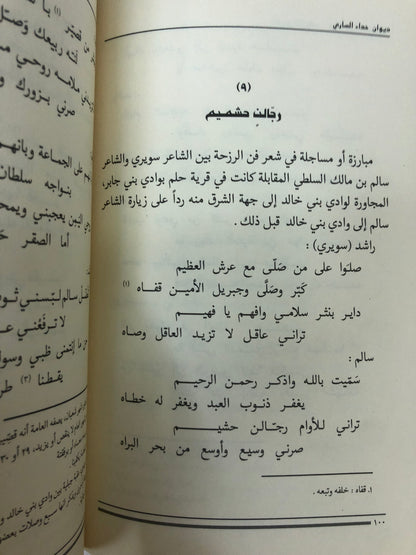 ديوان حداء الساري
(٩)
رجّالنٍ حشميم
مبارزة أو مساجلة في شعر فن الرزحة بين الشاعر سويري والشاعر
سالم بن مالك السلطي المقابلة كانت في قرية حلم بوادي بني جابر،
المجاورة لوادي بني خالد إلى جهة الشرق منه رداً على زيارة الشاعر
سالم إلى وادي بني خالد قبل ذلك .
راشد (سويري) :
صلوا على من صلّى مع عرش العظيم
كبّر وصلّى وجبريل الأمين قفاه (١)
داير بنثر سلامي وافهم يا فهيم
تراني عاقل لا تزيد العاقل وصاه
سالم :
سمّيت بالله واذكر رحمن الرحيم
يغفر ذنوب العبد ويغفر له خطاه
تراني للأوام رجالن حشيم
صرني وسيع وأوسع من بحر البراه
١. قفاه : خلفه وتبعه .
١٠٠
أنه ربيعك وصل
ني ملامه روحي
صرني بزورك و
على الجماعة وبانهم
بنواجه سلطان
اليبن يعجبني ويمح
أما الصقر
سالم لبّسني ثو
لا ترفّعني
ظبي وسوا
يقطنا (٣)